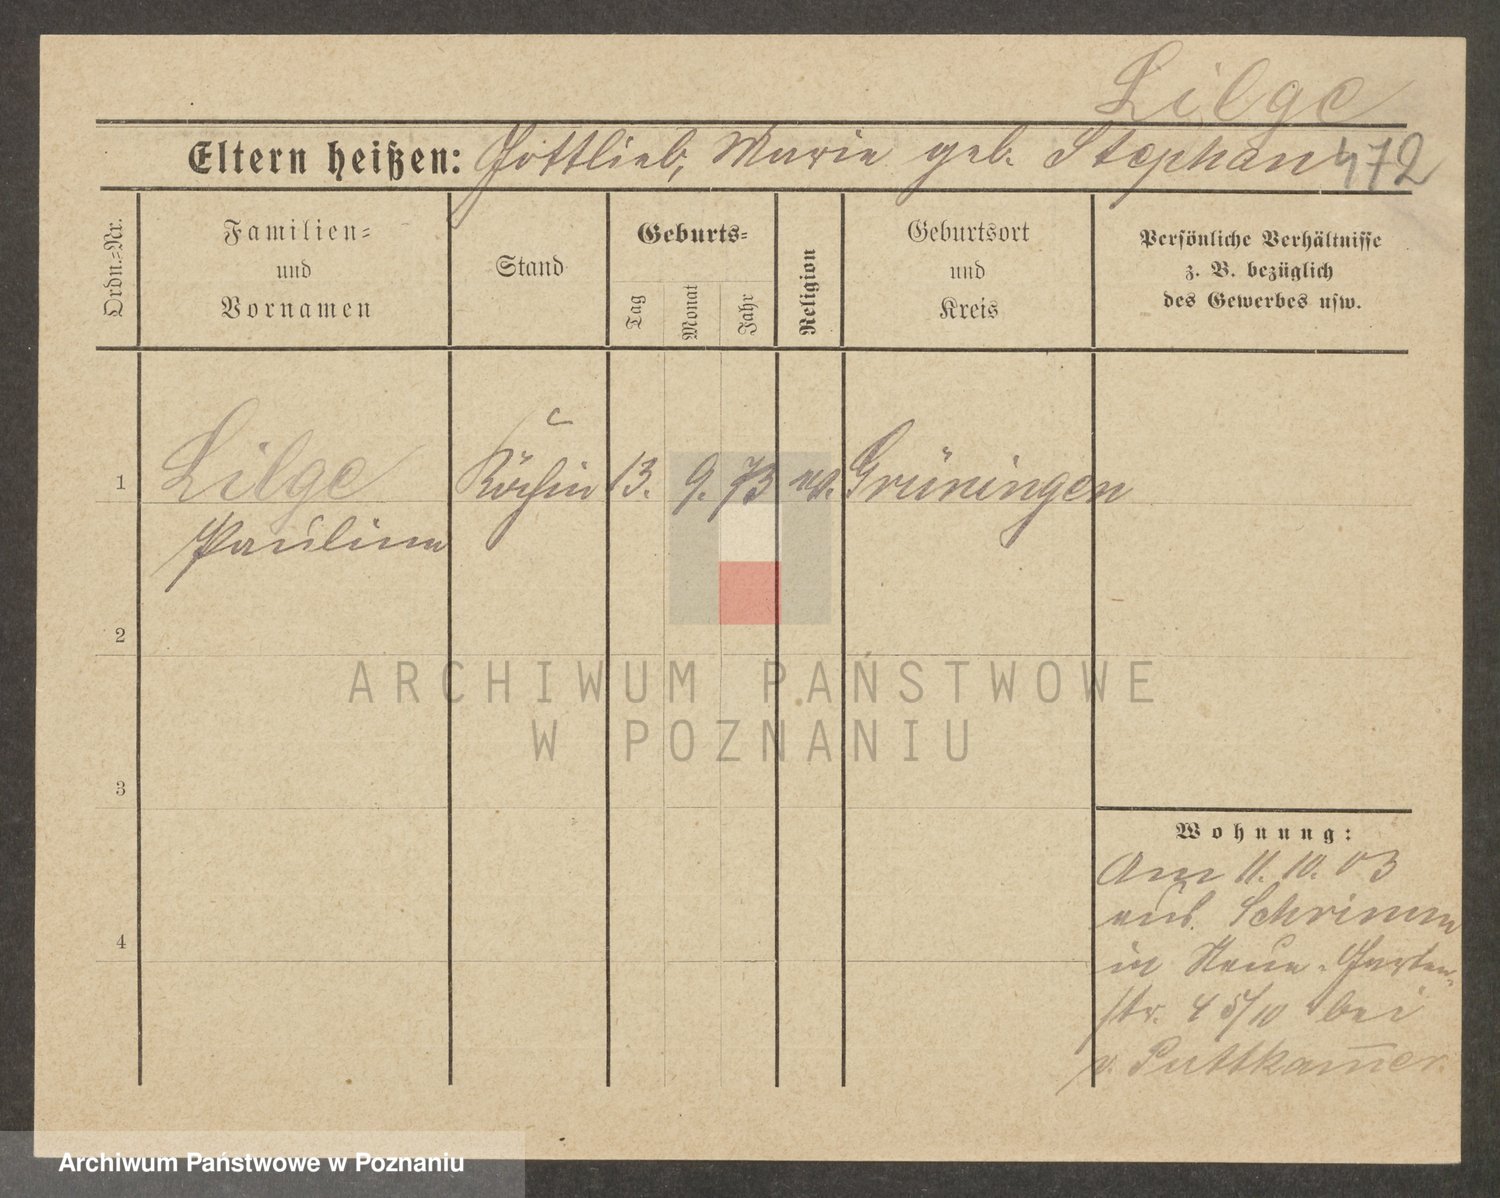 Lilge
Eltern heißen: Gottlieb, Marie geb. Stephan 472
Ordn.-Nr.
Familien-
und
Vornamen
Stand
Geburts-
Tag
Monat
Jahr
Religion
Geburtsort
und
Kreis
Persönliche Verhältnisse
z. B. bezüglich
des Gewerbes usw.
1 Lilge Köchin 13. 9. 73 ev. Grüningen
Pauline
2
3
4
Wohnung:
Am 11. 10. 03
aus Schrimm
in Neue-Garten-
str. 4 5/10 bei
v. Puttkam̅er.
ARCHIWUM PAŃSTWOWE
W POZNANIU
Archiwum Państwowe w Poznaniu